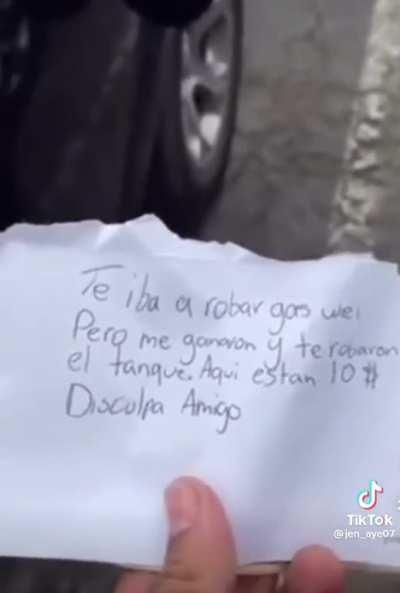 Te iba a robar gas wei
Pero me ganaron y te robaron
el tanque. Aqui estan 10 $
Disculpa Amigo
TikTok
@jen_aye07